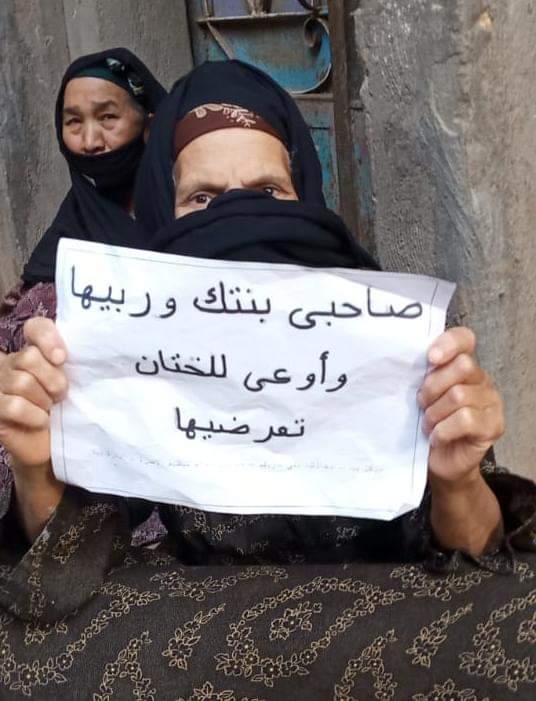 صاحبى بنتك وربيها
وأوعى للختان
تعرضيها